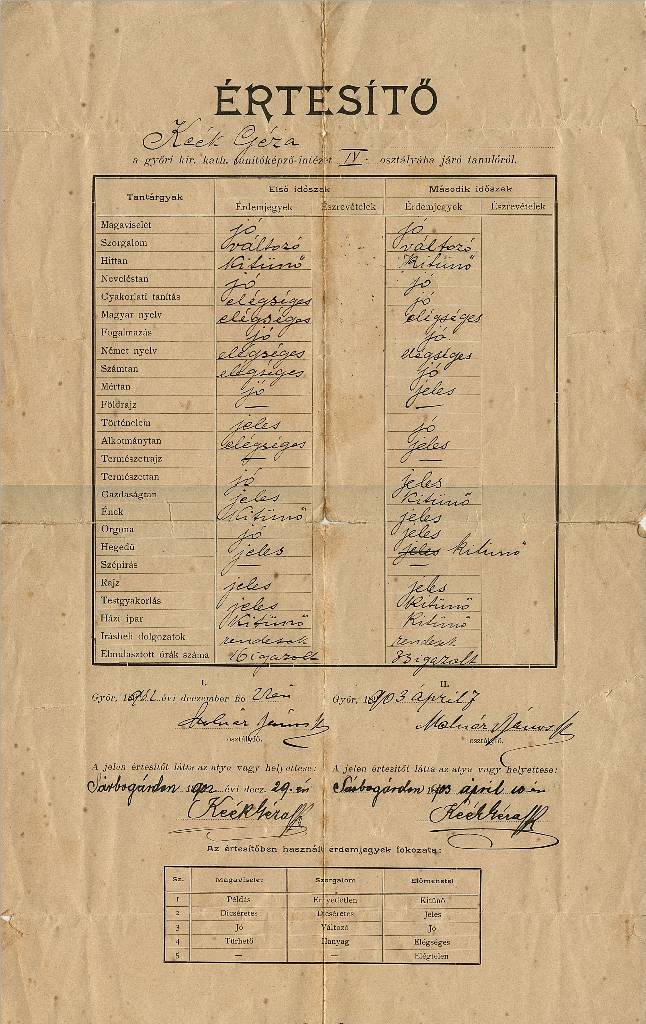 ÉRTESÍTŐ
Keék Géza
a győri kir. kath. tanítóképző-intézet IV. osztályába járó tanulóról.
Tantárgyak Első időszak Második időszak
Érdemjegyek Észrevételek Érdemjegyek Észrevételek
Magaviselet jó jó
Szorgalom változó változó
Hittan kitünő kitünő
Neveléstan jó jó
Gyakorlati tanítás elégséges jó
Magyar nyelv elégséges elégséges
Fogalmazás jó jó
Német nyelv elégséges elégséges
Számtan elégséges jó
Mértan jó jeles
Földrajz — —
Történelem jeles jó
Alkotmánytan elégséges jeles
Természetrajz — —
Természettan jó jeles
Gazdaságtan jeles kitünő
Ének kitünő jeles
Orgona jó jeles
Hegedű jeles jeles kitünő
Szépírás — —
Rajz jeles jeles
Testgyakorlás jeles kitünő
Házi ipar kitünő kitünő
Írásbeli dolgozatok rendesek rendesek
Elmulasztott órák száma 16 igazolt 33 igazolt
I. II.
Győr, évi deczember hó Győr, 1903 április 7
Molnár János Molnár János
osztályfő. osztályfő.
A jelen értesítőt látta az atya vagy helyettese: A jelen értesítőt látta az atya vagy helyettese:
Sárbogárdon 1902 évi decz. 29-én Sárbogárdon 1903 april 10 én
Keék Géza Keék Géza
Az értesítőben használt érdemjegyek fokozata:
Sz. Magaviselet Szorgalom Előmenetel
1 Példás Ernyedetlen Kitünő
2 Dicséretes Dicséretes Jeles
3 Jó Változó Jó
4 Türhető Hanyag Elégséges
5 — — Elégtelen